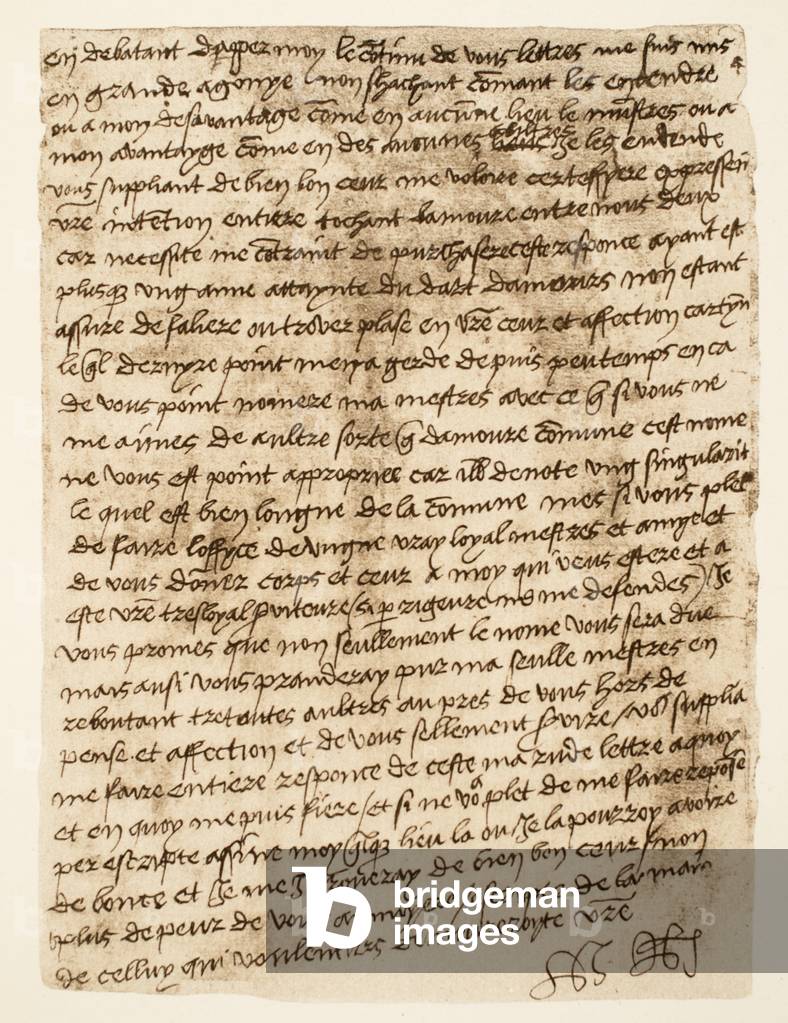 en debatant dapper moy le contenu de vous lettres me suis mis
en grande agonye non shachant comant les entendre
ou a mon desavantage come en aucune lieu le mustres ou a
mon avantayge come en des aucunes aultres je les entende
vous suppliant de bien bon ceur me voloire certeffyere expressen
vre intention entiere tochant lamoure entre nous deux
car necessite me contraint de purchasere ceste responce ayant est
plusque ung anne attaynte du dart damours non estant
assure de faliere ou trover plase en vre ceur et affection cartyn
le ql dernyre point men a gerde depuis peu temps en ca
de vous point nomere ma mestres avec ce q si vous ne
me aimes de aultre sorte q damoure comune cest nome
ne vous est point appropriee car ille denote ung singularit
le quel est bien longne de la comune mes si vous plet
de faire loffyce de ungne vray loyal mestres et amye et
de vous donner corps et ceur a moy qui veus estere et a
este vre tresloyal serviteure (si per rigeure ne me defendes) Je
vous promes que non seullement le nome vous sera due
mais ausi vous pranderay pur ma seulle mestres en
reboutant tretoutes aultres au pres de vous hors de
pense et affection et de vous sellement servire / vous supplia
me faire entiere responce de ceste ma rude lettre a quoy
et en quoy me puis fiere / et si ne vo plet de me faire reponse
per escripte assine moy qlque lieu la ou Je la pourroy avoire
de bouce et Je me y trouveray de bien bon ceur / non
plus de peur de vous de la main
de celluy qui voulentiers vre
bridgeman
images